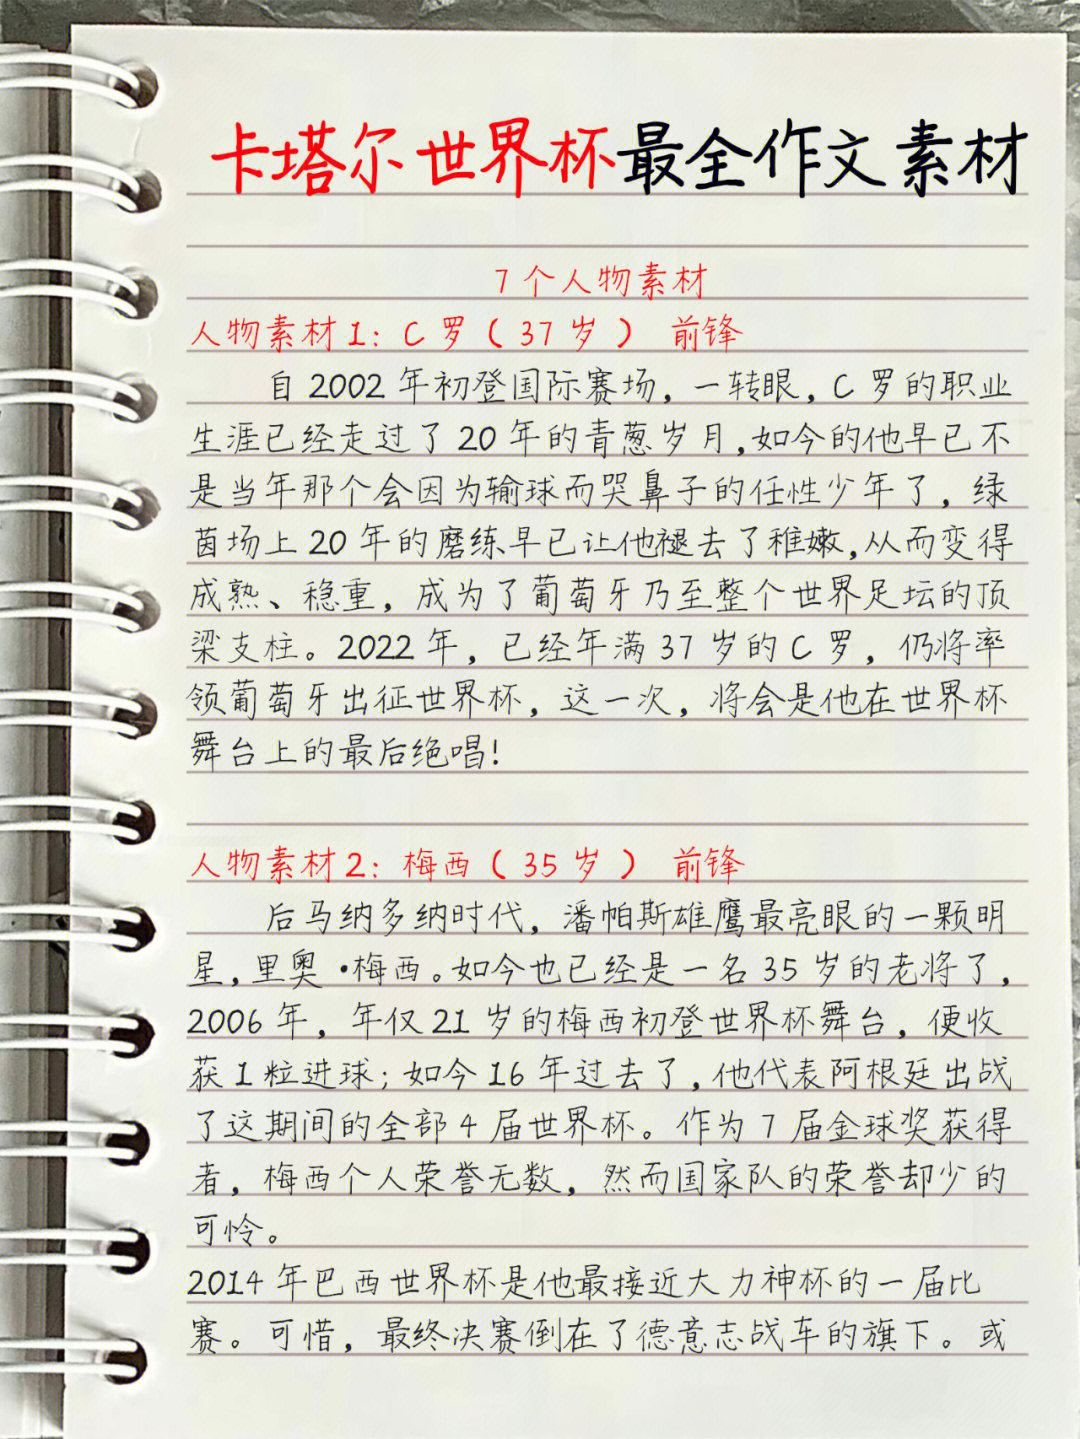 卡塔尔世界杯最全作文素材
7个人物素材
人物素材1：C罗（37岁） 前锋
自2002年初登国际赛场，一转眼，C罗的职业
生涯已经走过了20年的青葱岁月，如今的他早已不
是当年那个会因为输球而哭鼻子的任性少年了，绿
茵场上20年的磨练早已让他褪去了稚嫩，从而变得
成熟、稳重，成为了葡萄牙乃至整个世界足坛的顶
梁支柱。2022年，已经年满37岁的C罗，仍将率
领葡萄牙出征世界杯，这一次，将会是他在世界杯
舞台上的最后绝唱！
人物素材2：梅西（35岁） 前锋
后马纳多纳时代，潘帕斯雄鹰最亮眼的一颗明
星，里奥·梅西。如今也已经是一名35岁的老将了，
2006年，年仅21岁的梅西初登世界杯舞台，便收
获1粒进球；如今16年过去了，他代表阿根廷出战
了这期间的全部4届世界杯。作为7届金球奖获得
者，梅西个人荣誉无数，然而国家队的荣誉却少的
可怜。
2014年巴西世界杯是他最接近大力神杯的一届比
赛。可惜，最终决赛倒在了德意志战车的旗下。或